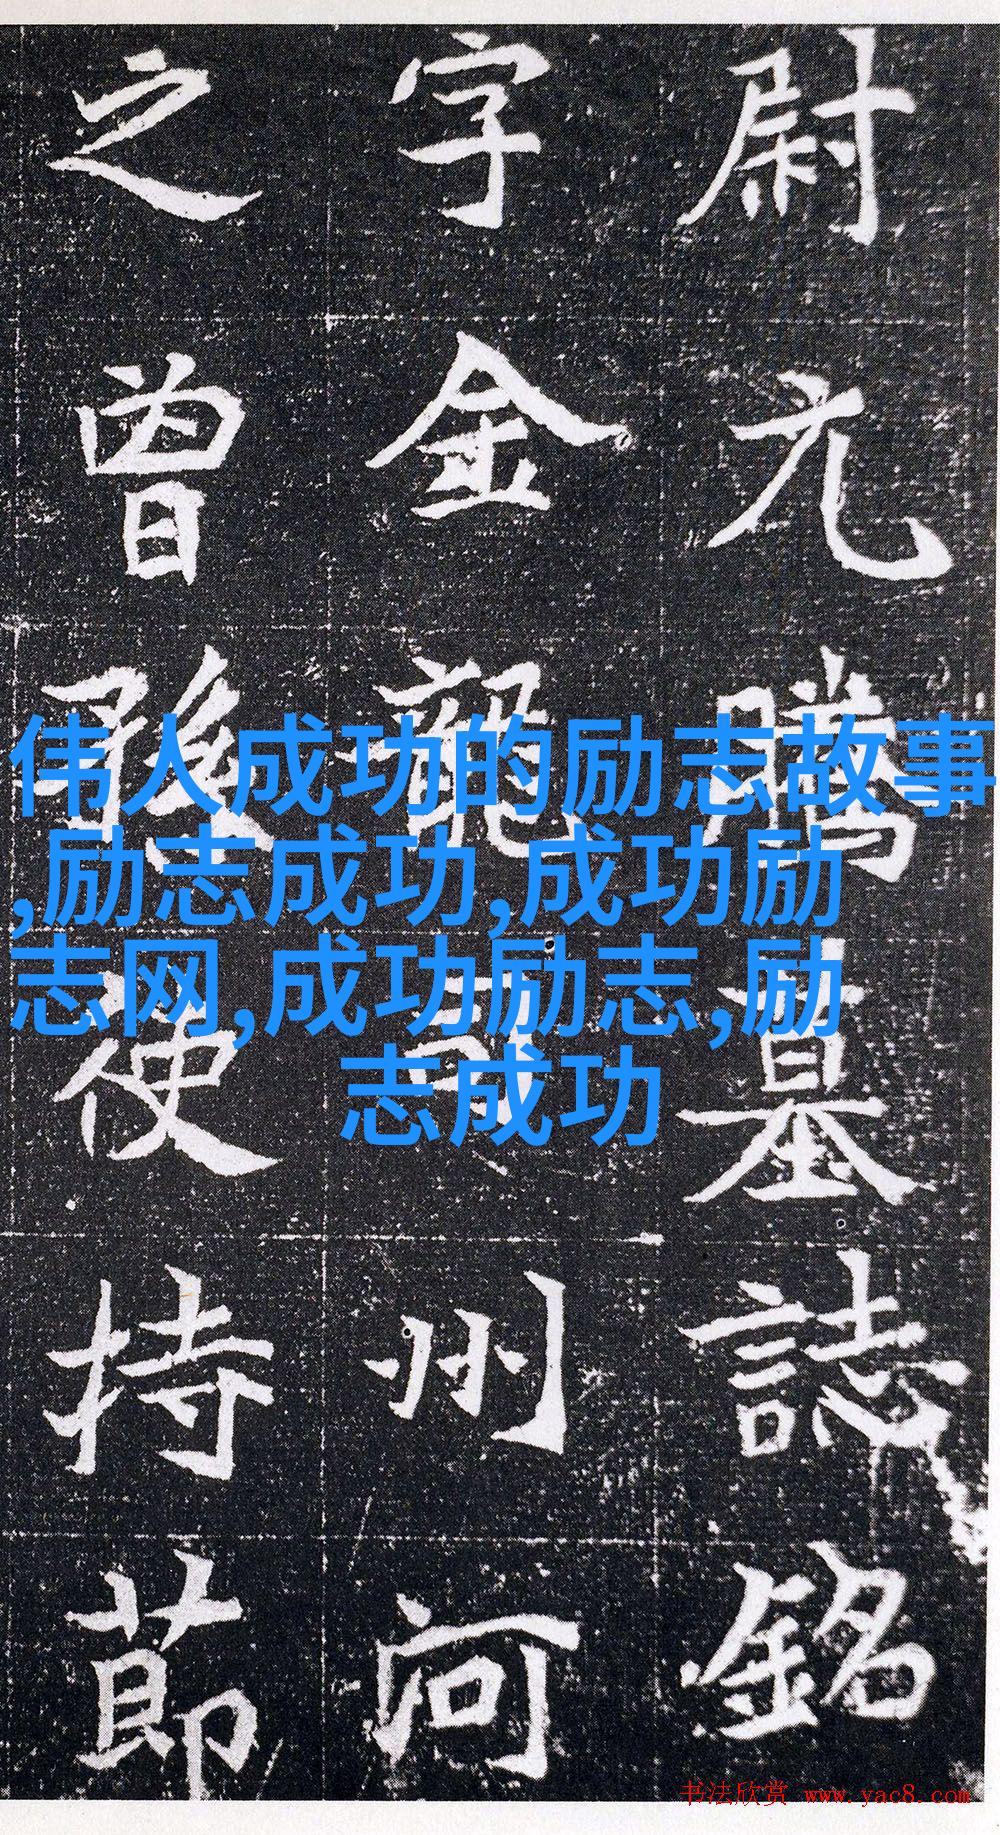 尉元騰墓誌銘
字金龍司州河
之曾孫使持莭
伟人成功的励志故事
,励志成功,成功励
志网,成功励志,励
志成功
书法欣赏 www.yac8.com